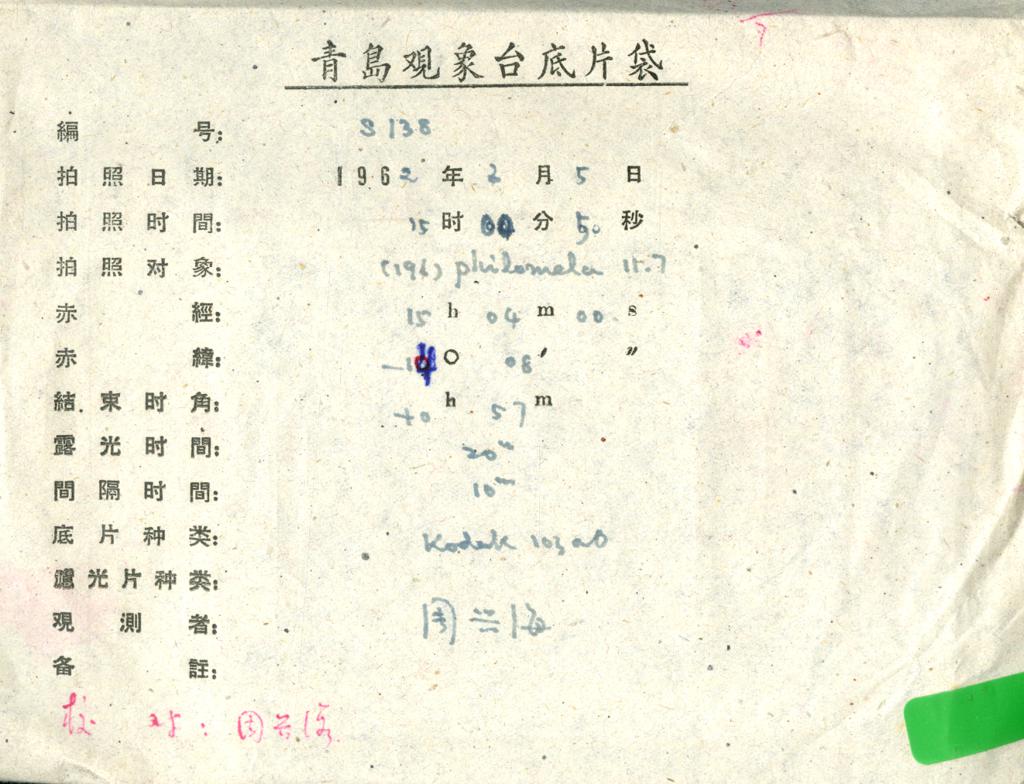 青島观象台底片袋
編号: S 138
拍照日期: 1962年2月5日
拍照时間: 15时00分50秒
拍照对象: (196) philomela 11.7
赤經: 15h 04m 00s
赤緯: ○ 08′ ″
結束时角: +0h 57m
露光时間: 20m
間隔时間: 10m
底片种类: Kodak 103aO
濾光片种类:
观測者: 周兴海
备註:
校对: 周兴海